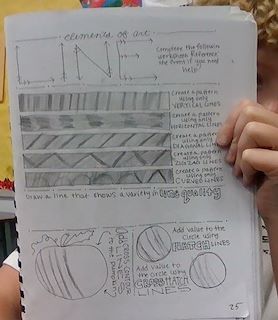 elements of art
LINE
Complete the following
worksheet. Reference
the front if you need
help
Create a pattern
using only
VERTICAL LINES
Create a pattern
using only
HORIZONTAL LINES
Create a pattern
using only
DIAGONAL LINES
Create a pattern
using only
ZIGZAG LINES
Create a pattern
using only
CURVED LINES
Draw a line that shows a variety in line quality
Add
CROSS CONTOUR
LINES
to the pumpkin
Add value to the
circle using
HATCH LINES
Add value to the
circle using
CROSSHATCH
LINES
25